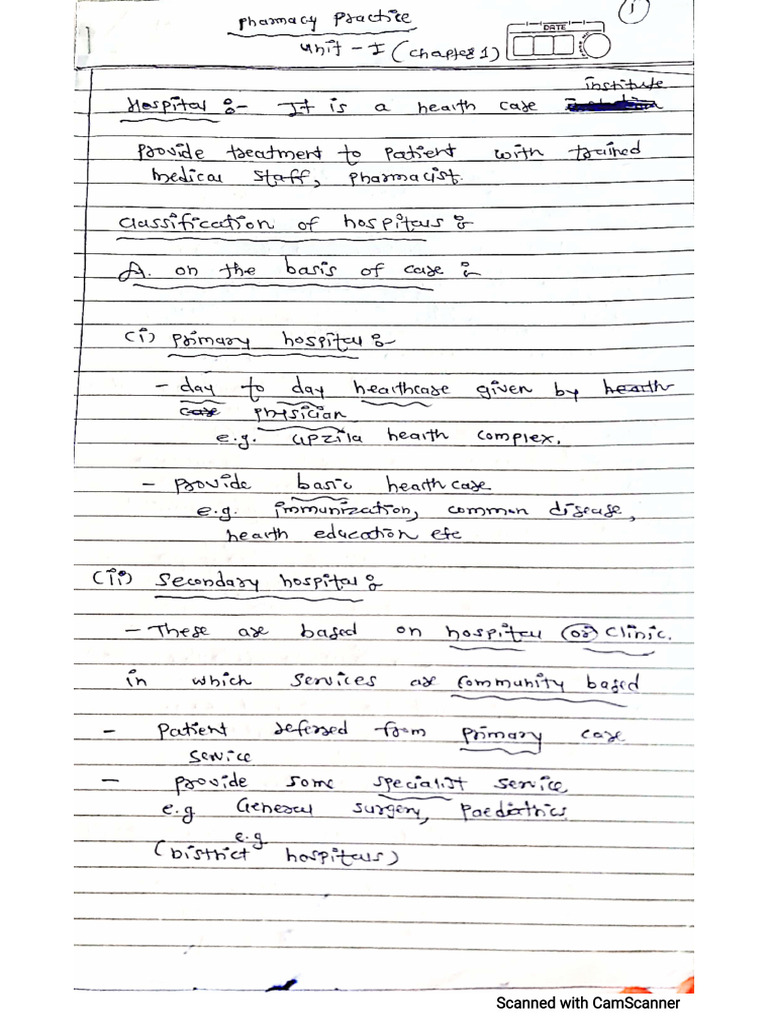 Pharmacy Practice
1
Unit - I (Chapter 1)
DATE
institute
Hospital :- It is a health care
Provide treatment to Patient with trained
medical staff, pharmacist.
Classification of hospitals :-
A. on the basis of care :-
(i) primary hospital :-
- day to day healthcare given by health
care physician
e.g. upzila health complex.
- Provide basic healthcare
e.g. immunization, common disease,
health education etc
(ii) Secondary hospital :-
- These are based on hospital (or) clinic.
in which services are community based
- Patient referred from primary care
service
- Provide some specialist service
e.g General surgery, Paediatrics
e.g
(District hospitals)
Scanned with CamScanner